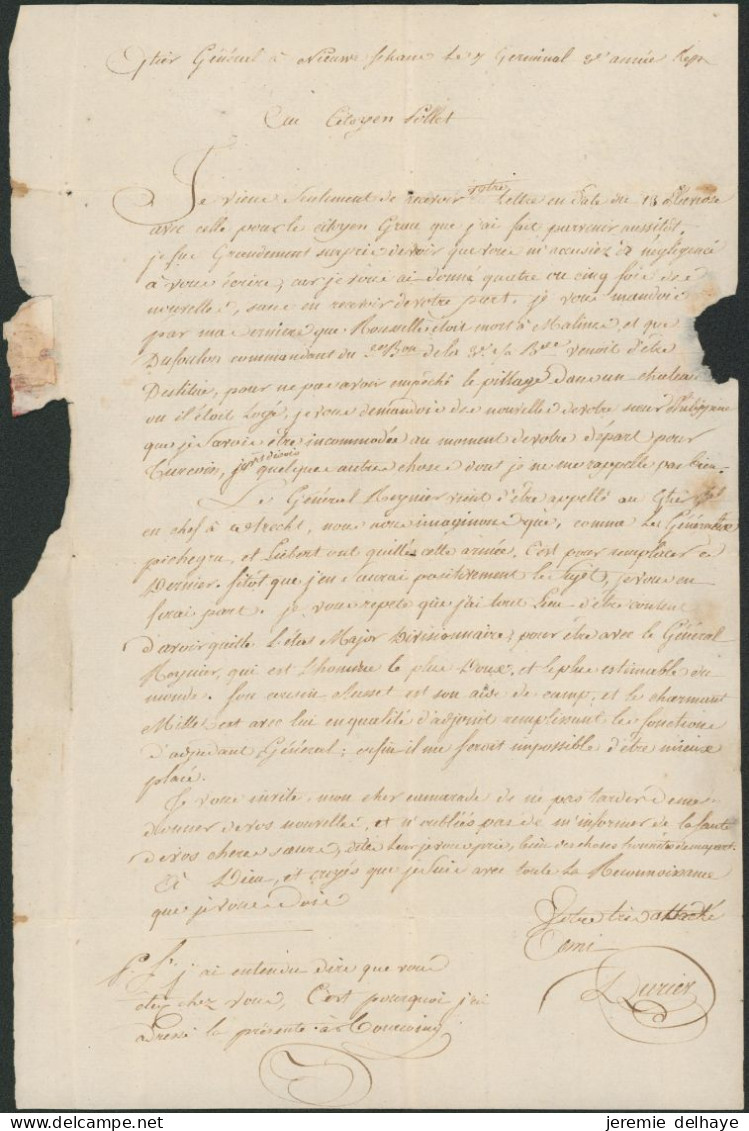 qtier Général à Nieuwe Schans Le 7 Germinal 3e année Rep
Au Citoyen Pollet
Je viens Seulement de recevoir votre Lettre en date du 18 Pluviose
avec celle pour le citoyen Grau que j'ai fait parvenir aussitôt,
je suis Grandement surpris de voir que vous m'accusiez de négligence
à vous écrire, car je vous ai donné quatre ou cinq fois de
nouvelles, sans en recevoir de votre part. je vous mandois
par ma derniere que Rousselle étoit mort à Malines, et que
Dufoulon commandant du Bon de la Bde venoit d'être
Destitué, pour ne pas avoir empêché le pillage dans un chateau
ou il étoit Logé, je vous demandois des nouvelles de votre sœur
que je savois être incommodée au moment de votre départ pour
Turcoin, quelque autre chose dont je ne me rappelle pas bien.
Le Général Reynier vient d'être appellé au qtier gal
en chef à utrecht, nous nous imaginons que, comme les Généraux
pichegru, et Liebert ont quitté cette armée, C'est pour remplacer ce
Dernier. Sitôt que j'en saurai positivement le Sujet, je vous en
ferai part. je vous repete que j'ai tout Lieu d'être content
d'avoir quitté l'état Major Divisionnaire, pour être avec le Général
Reynier, qui est l'homme le plus Doux, et le plus estimable du
monde. Son cousin Musset est son aide de camp, et le charmant
Millet est avec lui en qualité d'adjoint remplissant les fonctions
d'adjudant Général; enfin il me seroit impossible d'être mieux
placé.
Je vous invite, mon cher camarade de ne pas tarder à me
donner de vos nouvelles, et n'oubliés pas de m'informer de la santé
de vos cheres sœurs, dites leur je vous prie, bien des choses honnêtes de ma part.
à Dieu, et croyés que je suis avec toute La Reconnoissance
que je vous dois
Votre très attaché
ami
Durier
P.S. j'ai entendu dire que vous
étiez chez vous, C'est pourquoi j'ai
adressé la présente à Tourcoing
jeremie delhaye